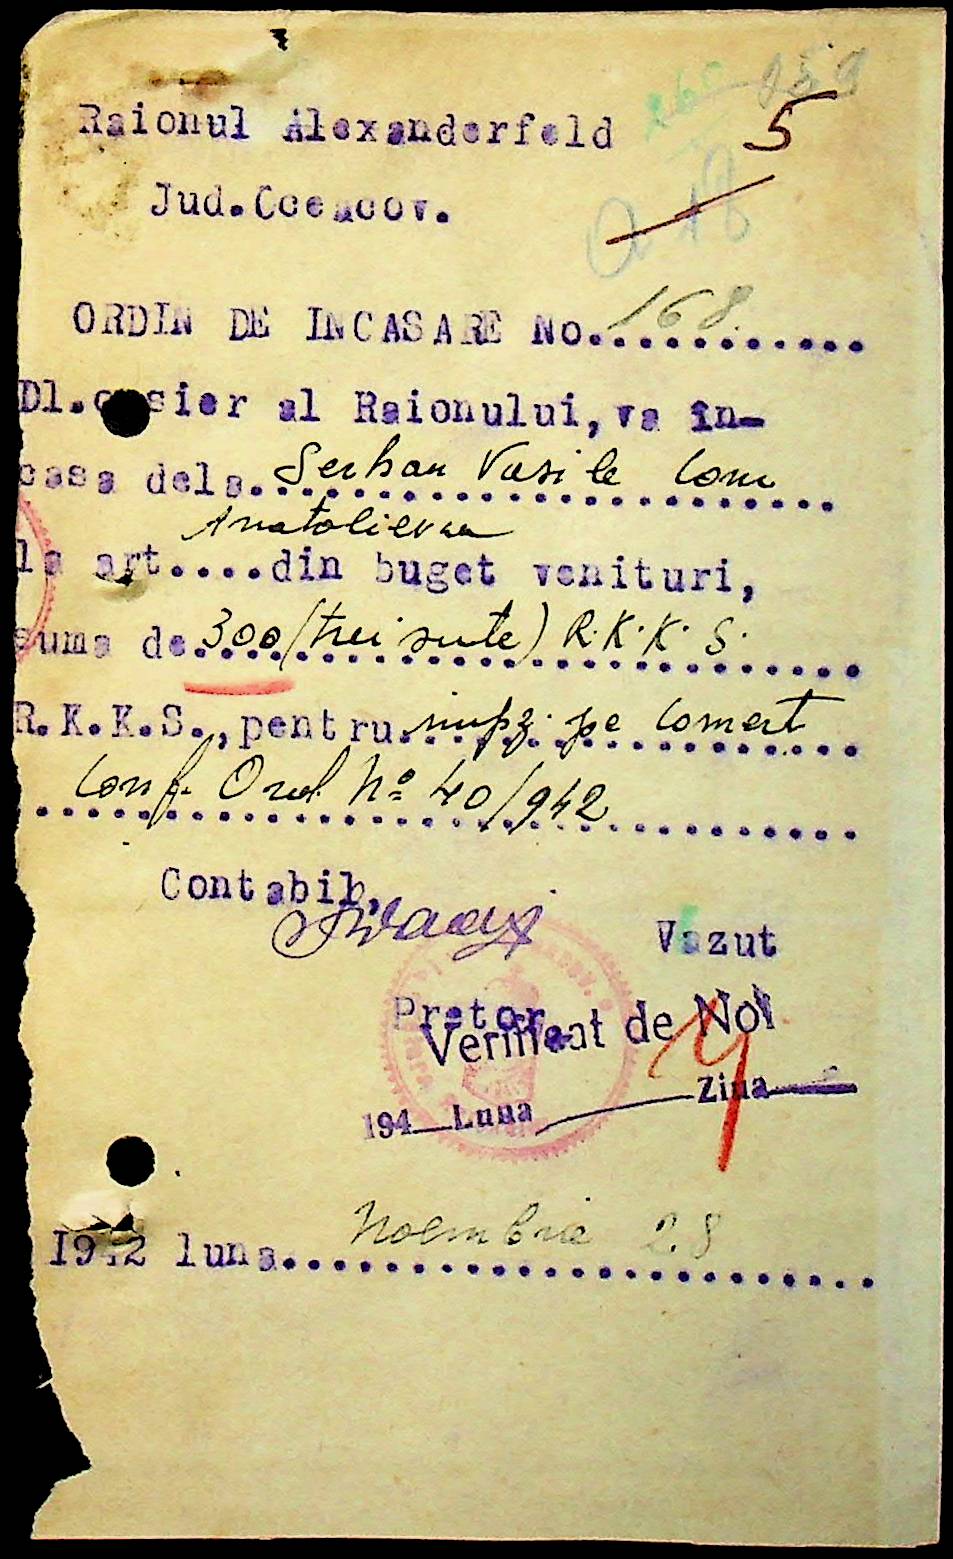 5
Raionul Alexanderfeld
Jud.Oceacov.
ORDIN DE INCASARE No. 168
Dl.casier al Raionului, va în-
casa dela. Serban Vasile Com
Anatolievca
la art....din buget venituri,
suma de 300 (trei sute) R.K.K.S.
R.K.K.S., pentru impz. pe comert
conf. Ord. No 40/942
Contabil,
Vazut
Pretor
Verificat de Noi
194 Luna Ziua
1942 luna Noembrie 28